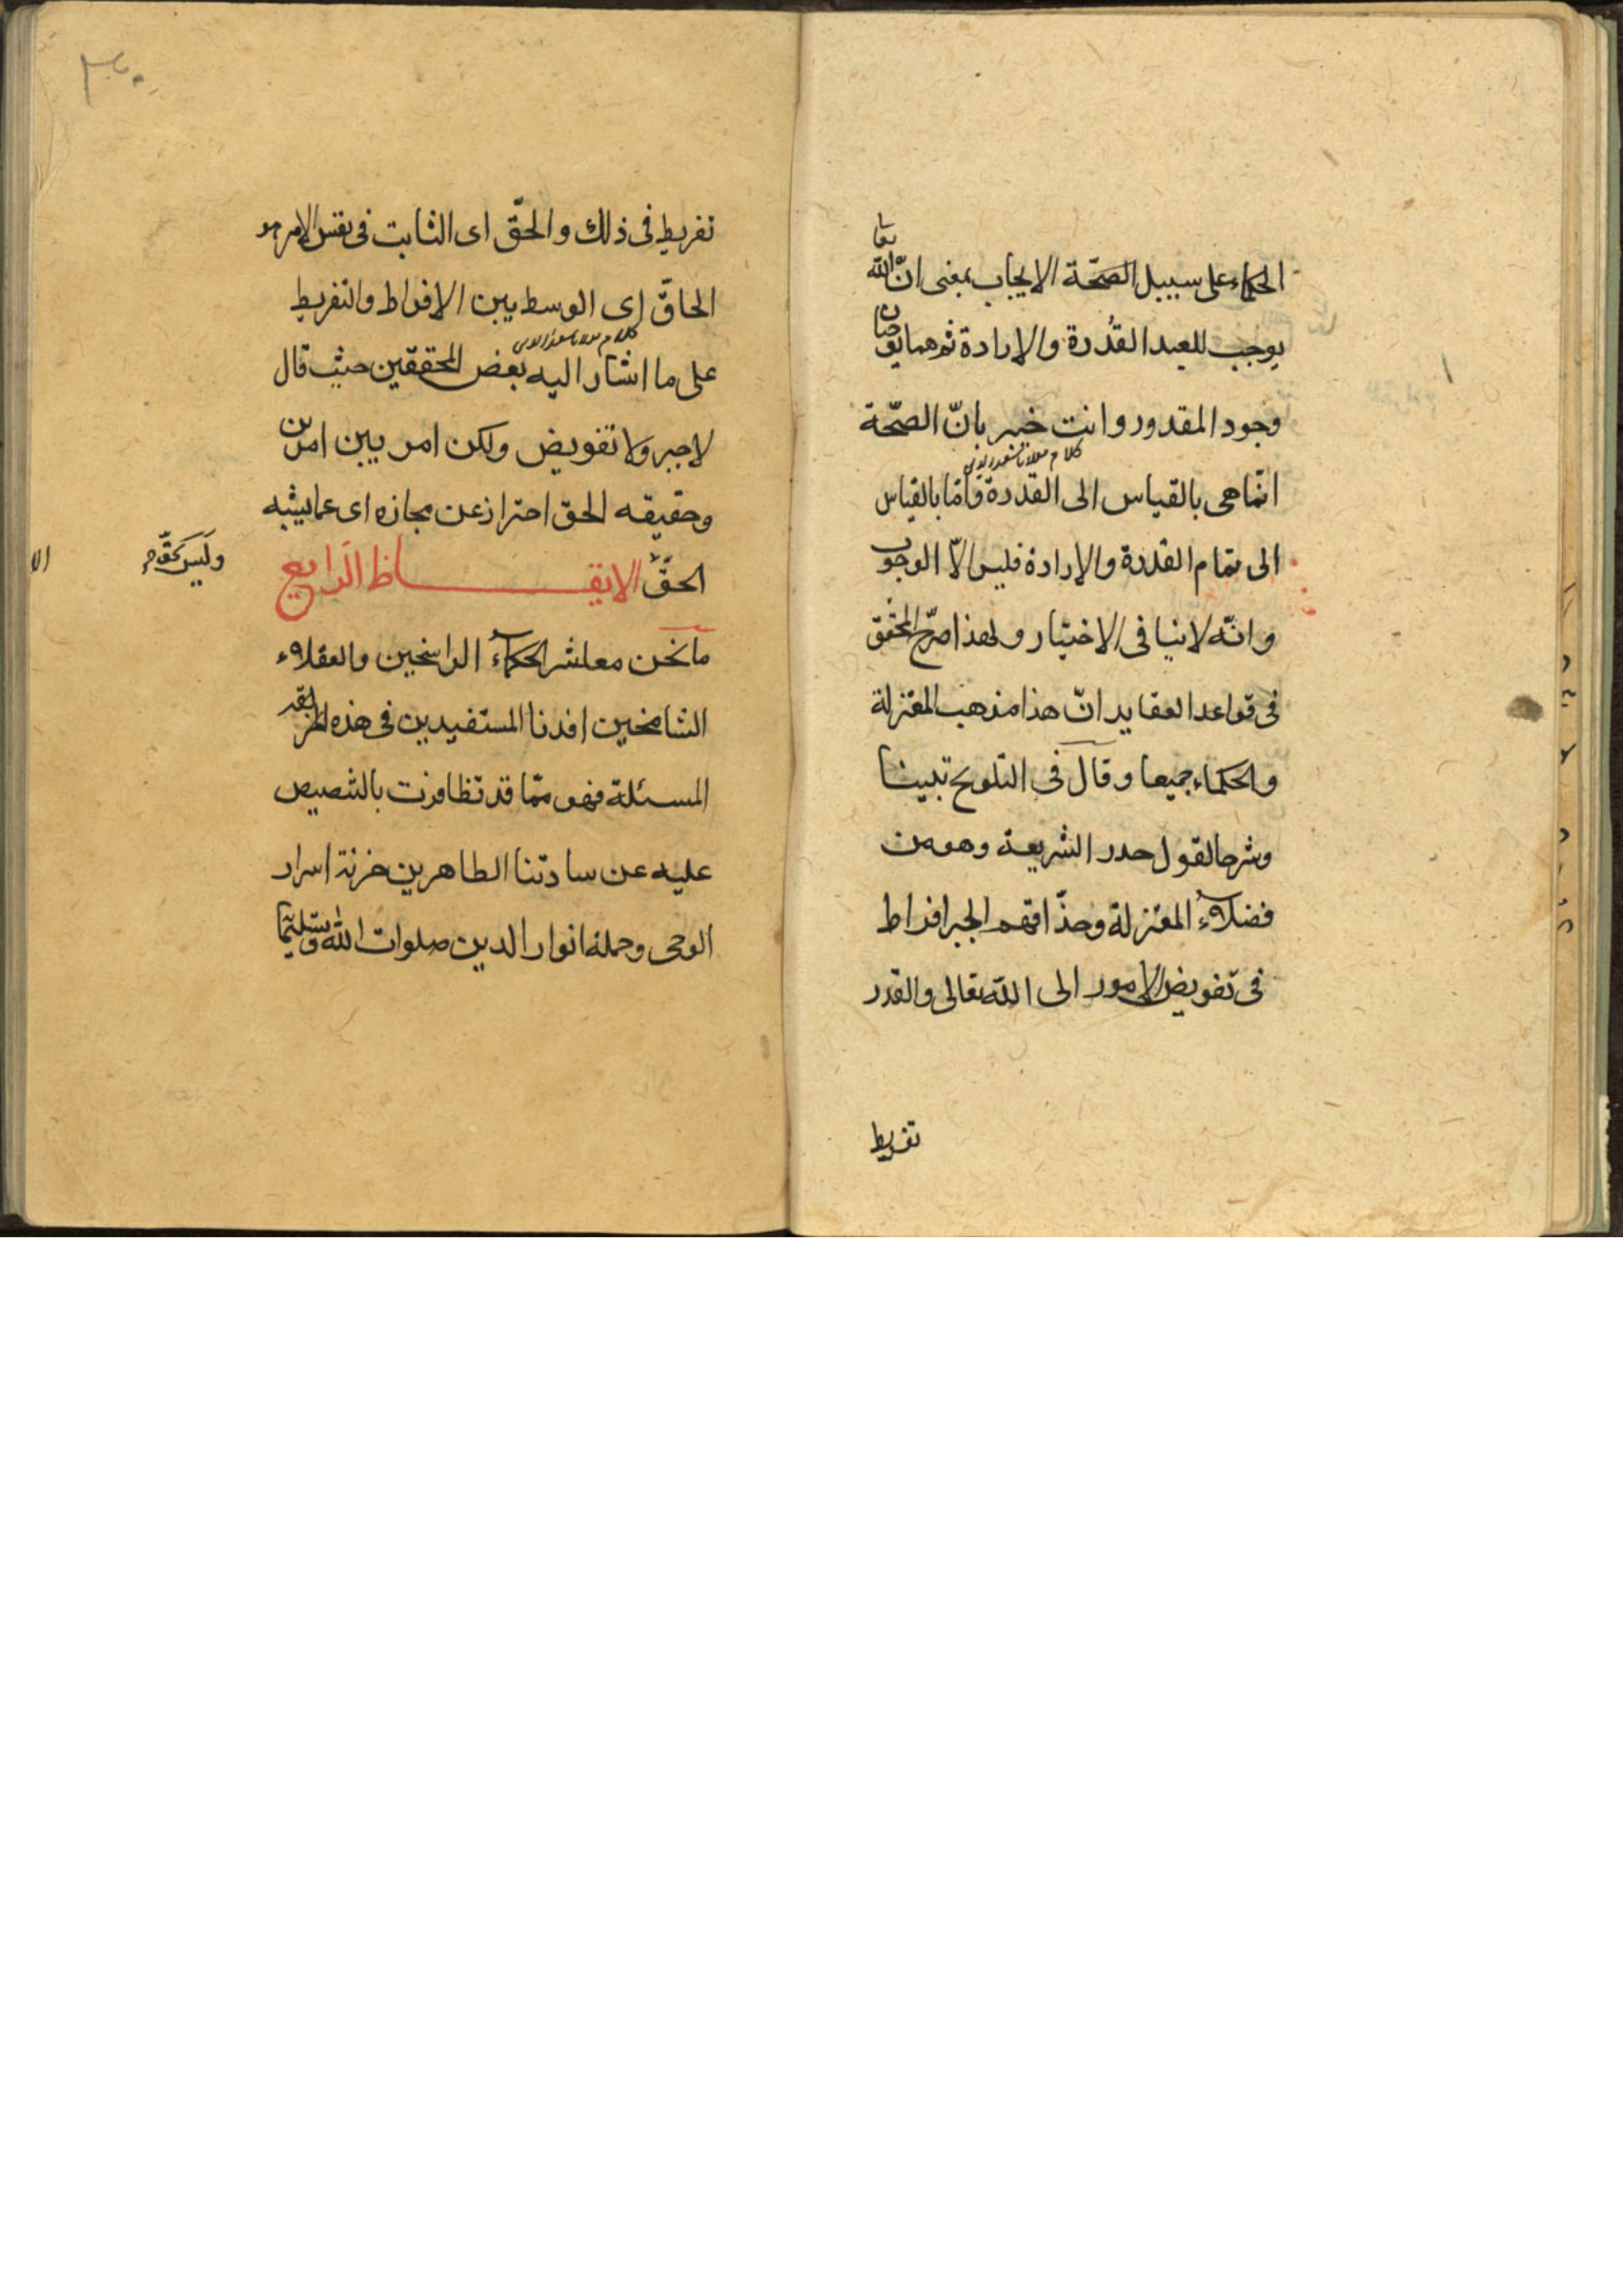 الحكماء على سبيل الصحّة الايجاب بمعنى انّ اللّه تعا
يوجب للعبد القُدرة والارادة ثم هما يوجبان
وجود المقدور وانت خبير بانّ الصحّة
كلام مولانا سعد الدين
انّما هى بالقياس الى القدرة فامّا بالقياس
الى تمام القدرة والارادة فليس الّا الوجوب
وانّه لا ينافى الاختيار ولهذا صرّح المحقق
فى قواعد العقايد انّ هذا مذهب المعتزلة
والحكماء جميعا وقال فى التلويح تبيينا
وشرحا لقول صدر الشريعة وهو من
فضلاء المعتزلة وحذّاقهم الجبر افراط
فى تفويض الامور الى اللّه تعالى والقدر
تفريط
تفريط فى ذلك والحقّ اى الثابت فى نفس الامر هو
الحاقّ اى الوسط بين الافراط والتفريط
كلام مولانا سعد الدين
على ما اشار اليه بعض المحققين حيث قال
لا جبر ولا تفويض ولكن امر بين امرين
وحقيقه الحق احتراز عن مجازه اى عما يشبه
الحقّ الايقـــاظ الرابع
وليس بحقّ
ما نحن معاشر الحكماء الراسخين والعقلاء
الشامخين افدنا المستفيدين فى هذه
المسئلة فهو ممّا قد تظافرت بالتنصيص
عليه عن سادتنا الطاهرين خزنة اسرار
الوحى وحملة انوار الدين صلوات اللّه وتسليماته